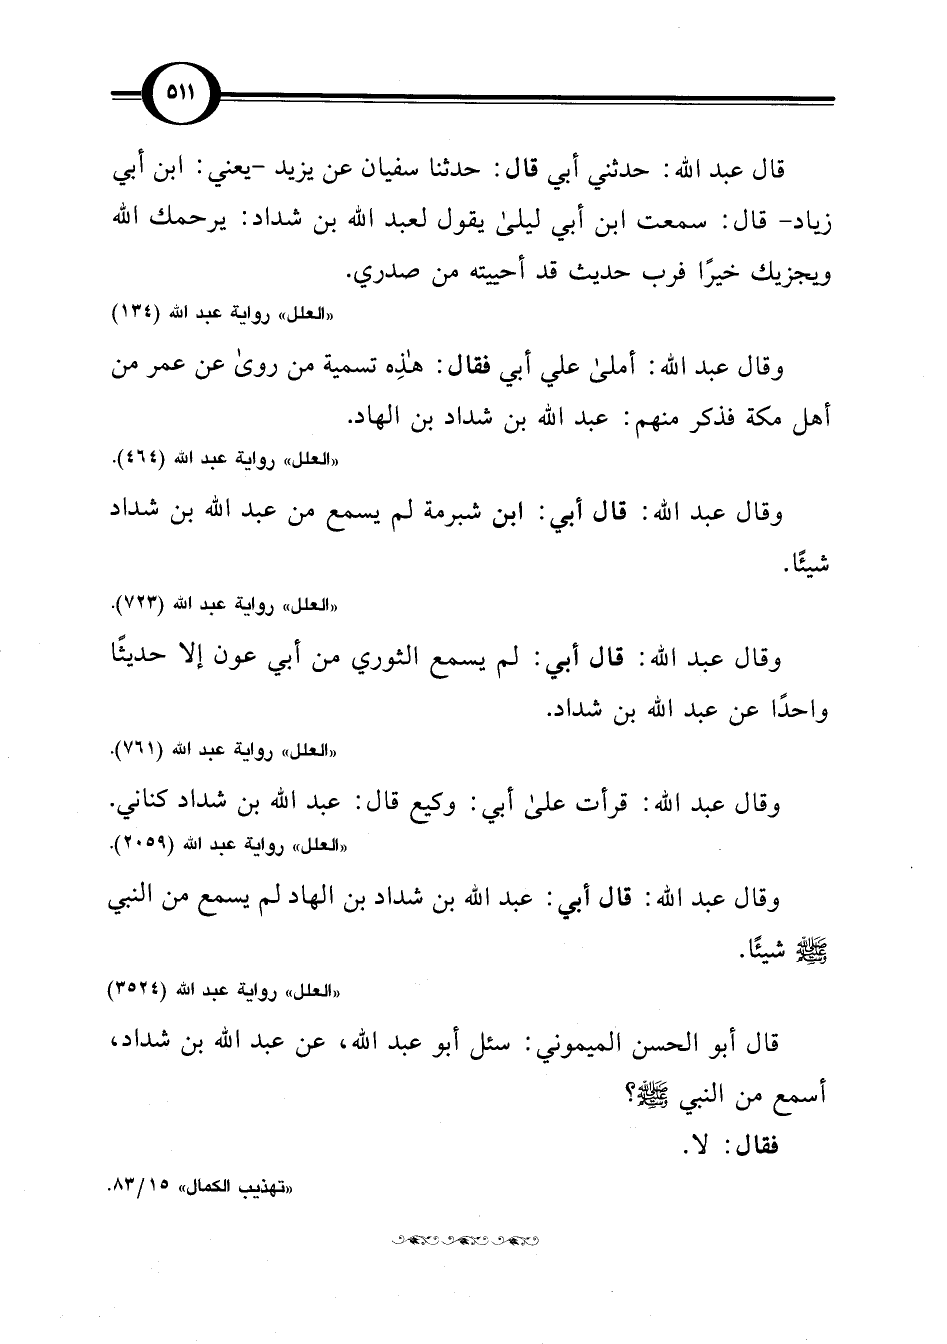 ٥١١
قال عبد الله: حدثني أبي قال: حدثنا سفيان عن يزيد -يعني: ابن أبي
زياد- قال: سمعت ابن أبي ليلىٰ يقول لعبد الله بن شداد: يرحمك الله
ويجزيك خيرًا فرب حديث قد أحييته من صدري.
«العلل» رواية عبد الله (١٣٤)
وقال عبد الله: أملىٰ علي أبي فقال: هذِه تسمية من روىٰ عن عمر من
أهل مكة فذكر منهم: عبد الله بن شداد بن الهاد.
«العلل» رواية عبد الله (٤٦٤).
وقال عبد الله: قال أبي: ابن شبرمة لم يسمع من عبد الله بن شداد
شيئًا.
«العلل» رواية عبد الله (٧٢٣).
وقال عبد الله: قال أبي: لم يسمع الثوري من أبي عون إلا حديثًا
واحدًا عن عبد الله بن شداد.
«العلل» رواية عبد الله (٧٦١).
وقال عبد الله: قرأت علىٰ أبي: وكيع قال: عبد الله بن شداد كناني.
«العلل» رواية عبد الله (٢٠٥٩).
وقال عبد الله: قال أبي: عبد الله بن شداد بن الهاد لم يسمع من النبي
ﷺ شيئًا.
«العلل» رواية عبد الله (٣٥٢٤)
قال أبو الحسن الميموني: سئل أبو عبد الله، عن عبد الله بن شداد،
أسمع من النبي ﷺ؟
فقال: لا.
«تهذيب الكمال» ١٥/ ٨٣.